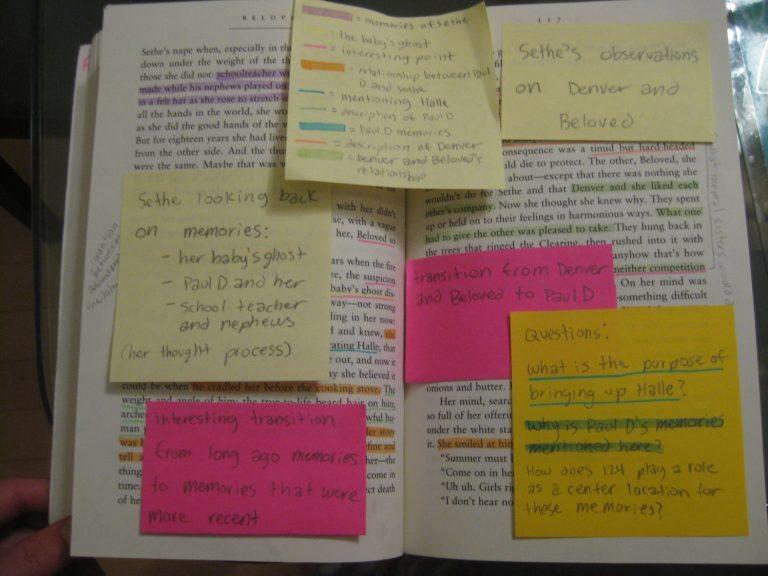 BELOVE
117
Sethe's nape when, especially in th
down under the weight of the th
those she did not: schoolteacher w
made while his nephews played on
in a felt hat as she rose to stretch
all the hands in the world, she wo
as she did the good hands of the
But for eighteen years she had live
from the other side. And the thu
were the same. Maybe that was w
= memories of sethe
= the baby's ghost
= interesting point
= relationship between Paul
D and sethe
= mentioning Halle
= description of Paul D
= Paul D memories
= description of Denver
= Denver and Beloved's
relationship
Sethe's observations
on Denver and
Beloved
onsequence was a timid but hard-headed
uld die to protect. The other, Beloved, she
about—except that there was nothing she
wouldn't do for Sethe and that Denver and she liked each
other's company. Now she thought she knew why. They spent
up or held on to their feelings in harmonious ways. What one
had to give the other was pleased to take. They hung back in
the trees that ringed the Clearing, then rushed into it with
anyhow that's how
neither competition
On her mind was
something difficult
Sethe looking back
on memories:
- her baby's ghost
- Paul D and her
- School teacher
and nephews
(her thought process)
with her didn't
se, with a vague
her, Beloved so
ars when the fire
e, the suspicion
baby's ghost dis-
way—not strong
ling in her now:
d and knew, she
vating Halle, that
e out, and now it
y she believed it
could be when he cradled her before the cooking stove. The
weight and angle of him; the true-to-life beard hair on him;
transition from Denver
and Beloved to Paul D
Questions:
what is the purpose of
bringing up Halle?
why is Paul D's memories
mentioned here?
How does 124 play a role
as a center location for
these memories?
interesting transition
from long ago memories
to memories that were
more recent
onions and butter.
Her mind, searc
so full of her offerin
under the white sta
it. She smiled at him
"Summer must b
"Come on in he
"Uh uh. Girls ri
"I don't hear no